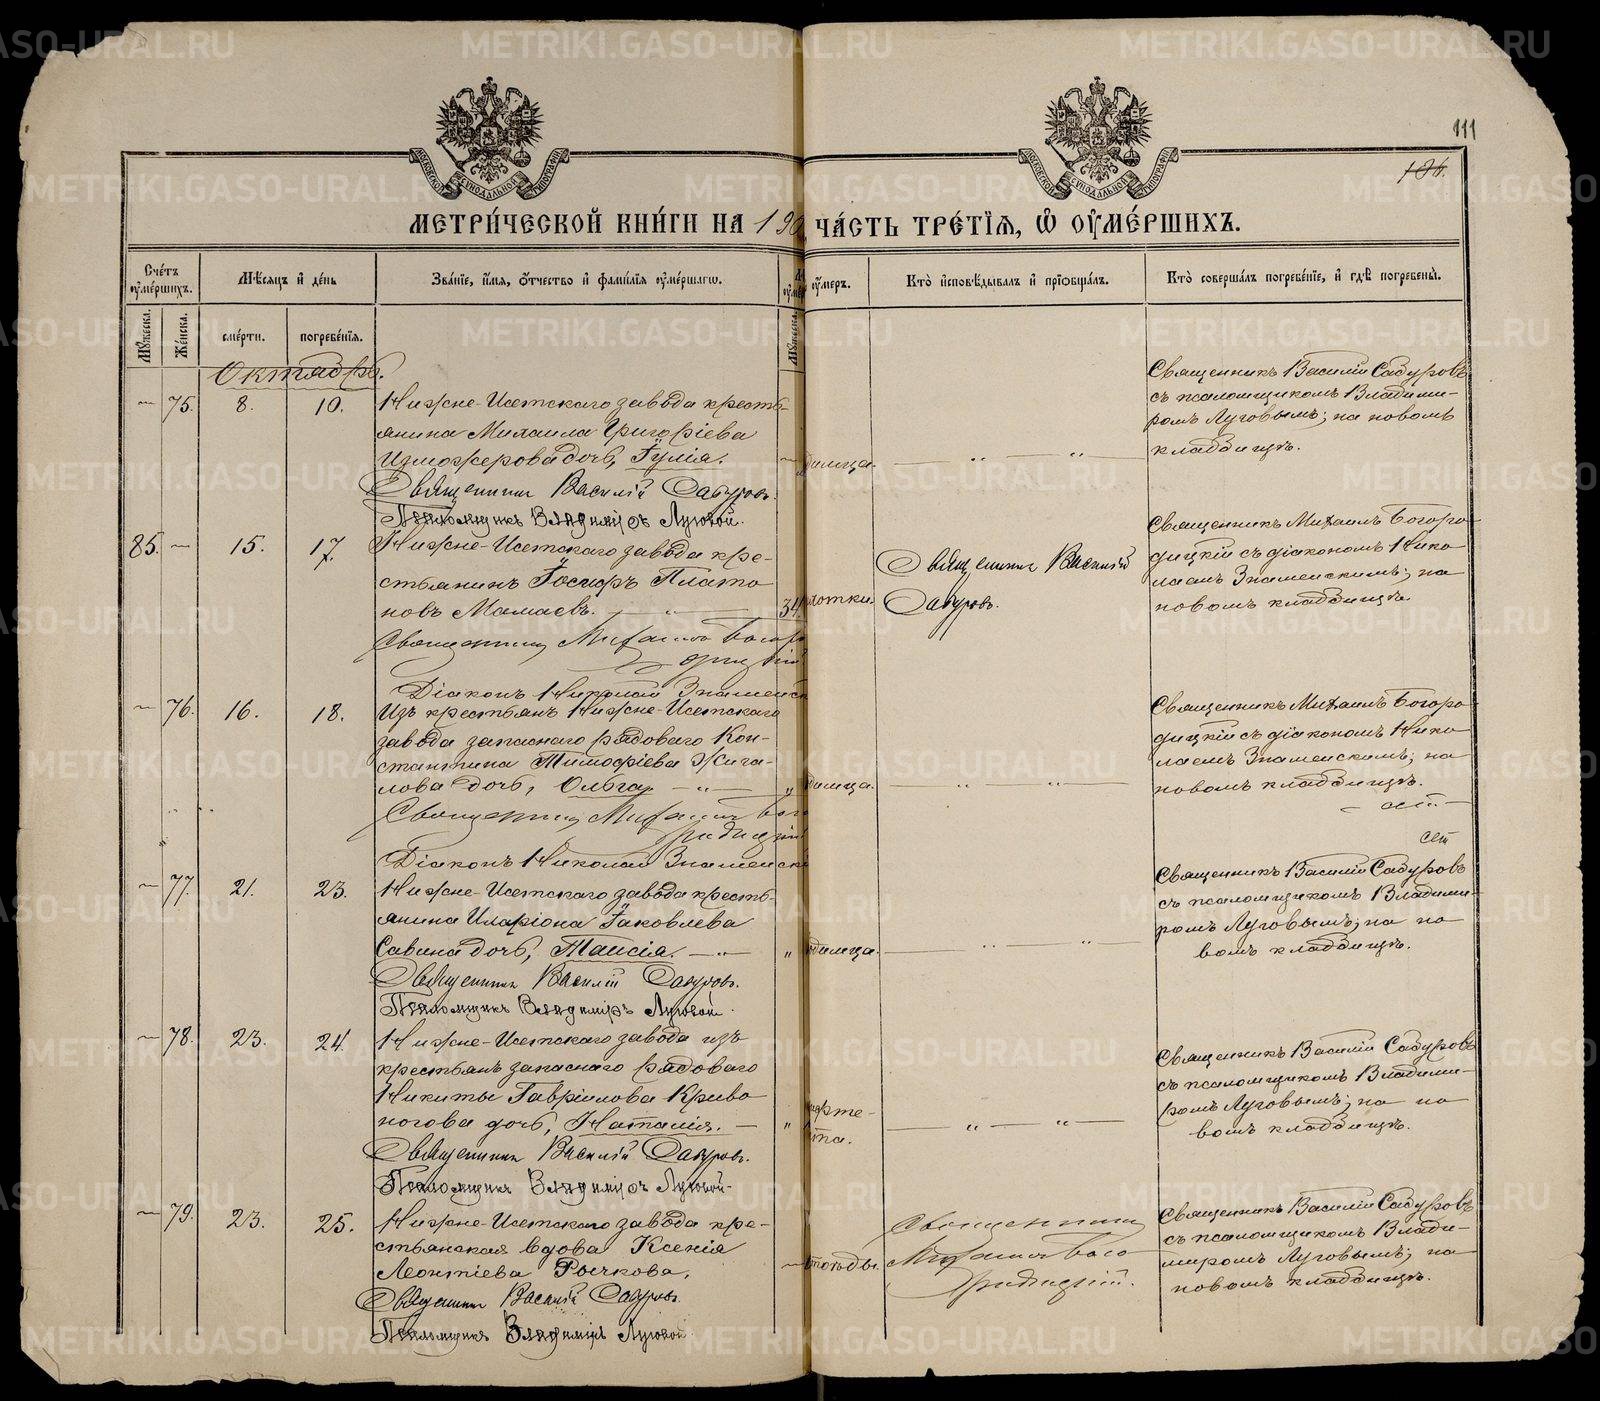 METRIKI.GASO-URAL.RU
111
106.
МОСКОВСКОЙ СѴНОДАЛЬНОЙ ТИПОГРАФІИ
МОСКОВСКОЙ СѴНОДАЛЬНОЙ ТИПОГРАФІИ
МЕТРИ́ЧЕСКОЙ КНИ́ГИ НА 190
ЧА́СТЬ ТРЕ́ТІѦ, Ѡ҆ ОУ҆МЕ́РШИХЪ.
Сче́тъ оу҆ме́ршихъ.
Мꙋ́жеска.
Же́нска.
Мѣ́сѧцъ и҆ де́нь
сме́рти.
погребе́нїѧ.
Зва́нїе, и҆́мѧ, ѻ҆́тчество и҆ фами́лїѧ оу҆ме́ршагѡ.
Мꙋ́жеска.
оу҆́меръ.
Кто̀ и҆сповѣ́дывалъ и҆ прїѡбща́лъ.
Кто̀ соверша́лъ погребе́нїе, и҆ гдѣ̀ погребены̀.
Октябрь.
— 75. 8. 10.
Нижне-Исетскаго завода кресть-
янина Михаила Григоріева
Изможерова дочь, Іулія.
Священникъ Василій Сабуровъ.
Псаломщикъ Владиміръ Луговой.
дилица.
Священникъ Василій Сабуровъ
съ псаломщикомъ Владими-
ромъ Луговымъ; на новомъ
кладбищѣ.
85. — 15. 17.
Нижне-Исетскаго завода кре-
стьянинъ Іосифъ Плато
новъ Мамаевъ.
Священникъ Михаилъ Богоро
дицкій
Діаконъ Николай Знаменск
34
Священникъ Василій
Сабуровъ.
Священникъ Михаилъ Богоро
дицкій съ діакономъ Нико
лаемъ Знаменскимъ; на
новомъ кладбищѣ.
— 76. 16. 18.
Изъ крестьянъ Нижне-Исетскаго
завода запаснаго рядоваго Кон-
стантина Тимофіева Жига-
лова дочь, Ольга,
Священникъ Михаилъ Бого
родицкій
Діаконъ Николай Знаменск
дилица.
Священникъ Михаилъ Богоро
дицкій съ діакономъ Нико
лаемъ Знаменскимъ; на
новомъ кладбищѣ.
— 77. 21. 23.
Нижне-Исетскаго завода кресть-
янина Иларіона Іаковлева
Савина дочь, Таисія.
Священникъ Василій Сабуровъ.
Псаломщикъ Владиміръ Луговой.
дилица.
Священникъ Василій Сабуровъ
съ псаломщикомъ Владими-
ромъ Луговымъ; на но
вомъ кладбищѣ.
— 78. 23. 24.
Нижне-Исетскаго завода изъ
крестьянъ запаснаго рядоваго
Никиты Гавріилова Криво
ногова дочь, Наталія.
Священникъ Василій Сабуровъ.
Псаломщикъ Владиміръ Луговой.
Священникъ Василій Сабуровъ
съ псаломщикомъ Владими-
ромъ Луговымъ; на но
вомъ кладбищѣ.
— 79. 23. 25.
Нижне-Исетскаго завода кре-
стьянская вдова Ксенія
Леонтіева Рычкова.
Священникъ Василій Сабуровъ.
Псаломщикъ Владиміръ Луговой
Священникъ
Михаилъ Бого
родицкій.
Священникъ Василій Сабуровъ
съ псаломщикомъ Влади-
миромъ Луговымъ; на
новомъ кладбищѣ.